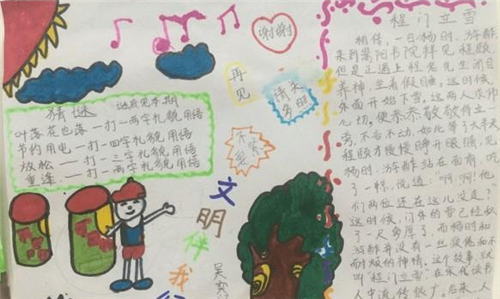 谢谢
再见
请多
多明
猜谜
谜底见本期
叶落花也落—打一两字礼貌用语
节约用电—打一四字礼貌用语
放松——打一三字礼貌用语
重逢——打一两字礼貌用语
文
明
伴
我
行
吴
程门立雪
相传，一日杨时、游酢
来到嵩阳书院拜见程颐
但是正遇上程老先生闭目
养神，坐着假睡。这时候
外面开始下雪。这两人求师
心切，便恭恭敬敬侍立一
旁，不言不动，如此等了大半天
程颐才慢慢睁开眼睛，见
杨时、游酢站在面前，吃
了一惊，说道："啊，啊！他
们两位还在这儿没走？"
这时候，门外的雪已经积
了一尺多厚了，而杨时和
游酢并没有一丝疲倦和不
耐烦的神情。这个故事，就
叫"程门立雪"，在宋代读书
人中流传很广。后来人